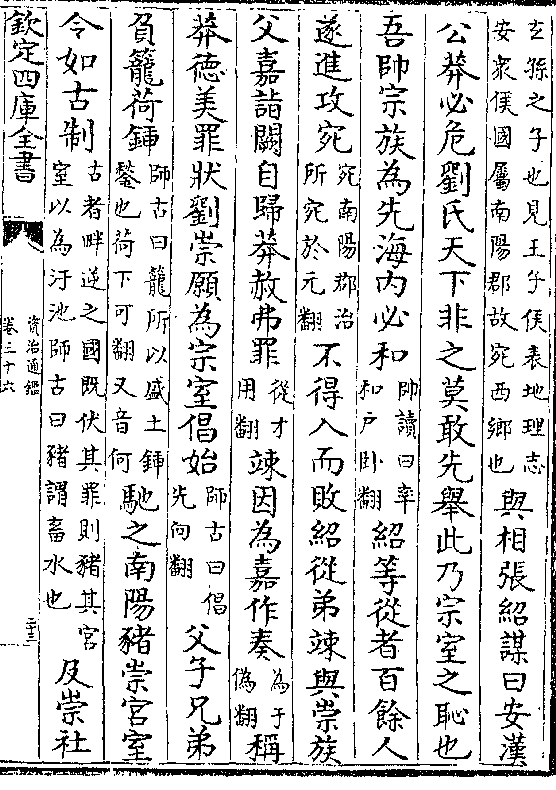 玄孫之子也見王子侯表地理志
安衆侯國屬南陽郡故宛西鄉也
與相張紹謀曰安漢
公莽必危劉氏天下非之莫敢先舉此乃宗室之恥也
吾帥宗族為先海内必和
帥讀曰率
和户卧翻
紹等從者百餘人
遂進攻宛
宛南陽郡治
所宛於元翻
不得入而敗紹從弟竦與崇族
父嘉詣闕自歸莽赦弗罪
從才
用翻
竦因為嘉作奏
為于
偽翻
稱
莽德美罪狀劉崇願為宗室倡始
師古曰倡
先向翻
父子兄弟
負籠荷鍤
師古曰籠所以盛土鍤
鍫也荷下可翻又音何
馳之南陽豬崇宫室
令如古制
古者畔逆之國既伏其罪則豬其宫
室以為汙池師古曰豬謂畜水也
及崇社
欽定四庫全書
資治通鑑
卷三十六
二十三